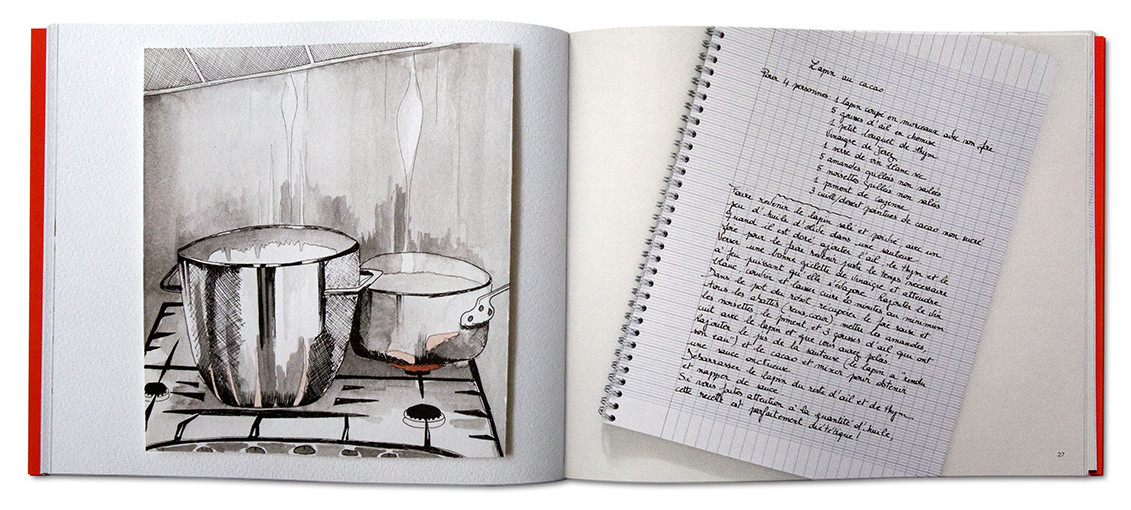 Lapin au cacao
Pour 4 personnes 1 lapin coupé en morceaux avec son foie
5 gousses d'ail en chemise
1 petit bouquet de thym
Vinaigre de Jerez
1 verre de vin blanc sec
5 amandes grillées non salées
5 noisettes grillées non salées
1 piment de cayenne
3 cuill/dessert pointues de cacao non sucré
Faire revenir le lapin salé et poivré avec un
peu d'huile d'olive dans une sauteuse.
Quand il est doré, ajouter l'ail, le thym et le
foie pour le faire revenir juste le temps nécessaire
Verser une bonne giclette de vinaigre et attendre
à feu puissant qu'elle s'évapore. Rajouter le vin
blanc, couvrir et laisser cuire minutes au minimum
Dans le pot du robot, récupérer le foie saisi et
tous les abattis (rens, cœur), mettre les amandes,
les noisettes, le piment et 3 gousses d'ail qui ont
cuit avec le lapin et que vous aurez pelées.
Rajouter le jus de la sauteuse (le lapin a "rendu
son eau") et le cacao et mixer pour obtenir
une sauce onctueuse.
Débarrasser le lapin du reste d'ail et de thym
et napper de sauce.
Si vous faites attention à la quantité d'huile,
cette recette est parfaitement diététique !
27